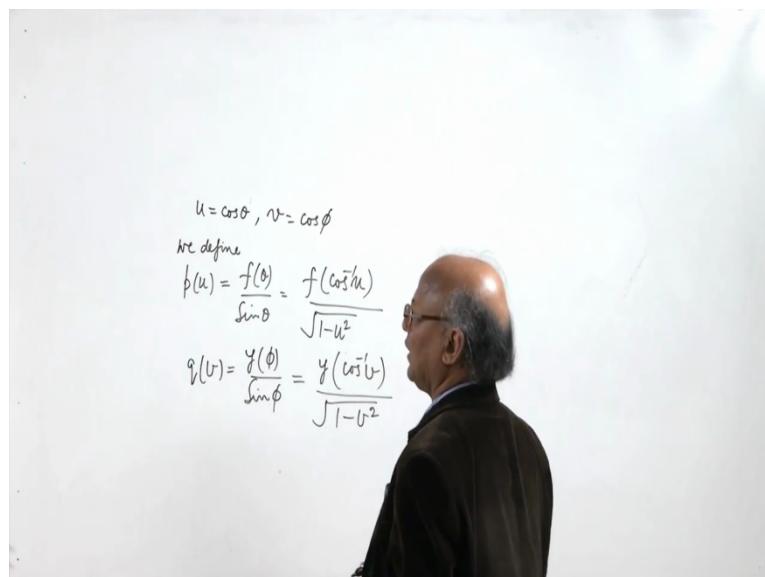 u = cosθ, v = cosϕ
we define
p(u) = f(θ)/sinθ = f(cos⁻¹u)/√1-u²
q(v) = y(ϕ)/sinϕ = y(cos⁻¹v)/√1-v²